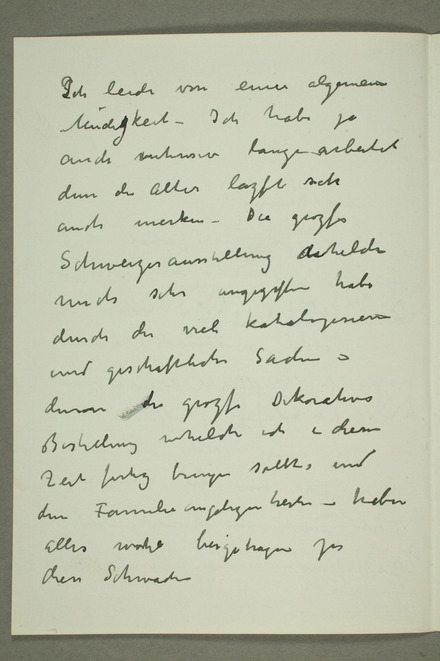 Ich leide von einer algemeinen
Müdigkeit – Ich habe ja
auch intensiv lange arbeitet
den die Alter lazft sich
auch merken – Die grozfe
Schweizerausstellung
mich sehr angegriffen habe
durch die viele katalogisieren
und geschaftliche Sachen –
davon die grozfe Dekorative
Bestellung welche ich in diesen
Zeit fertig bringen sollte, und
den Familieangelegenheiten – haben
alles beigetragen zu
diese Schwache